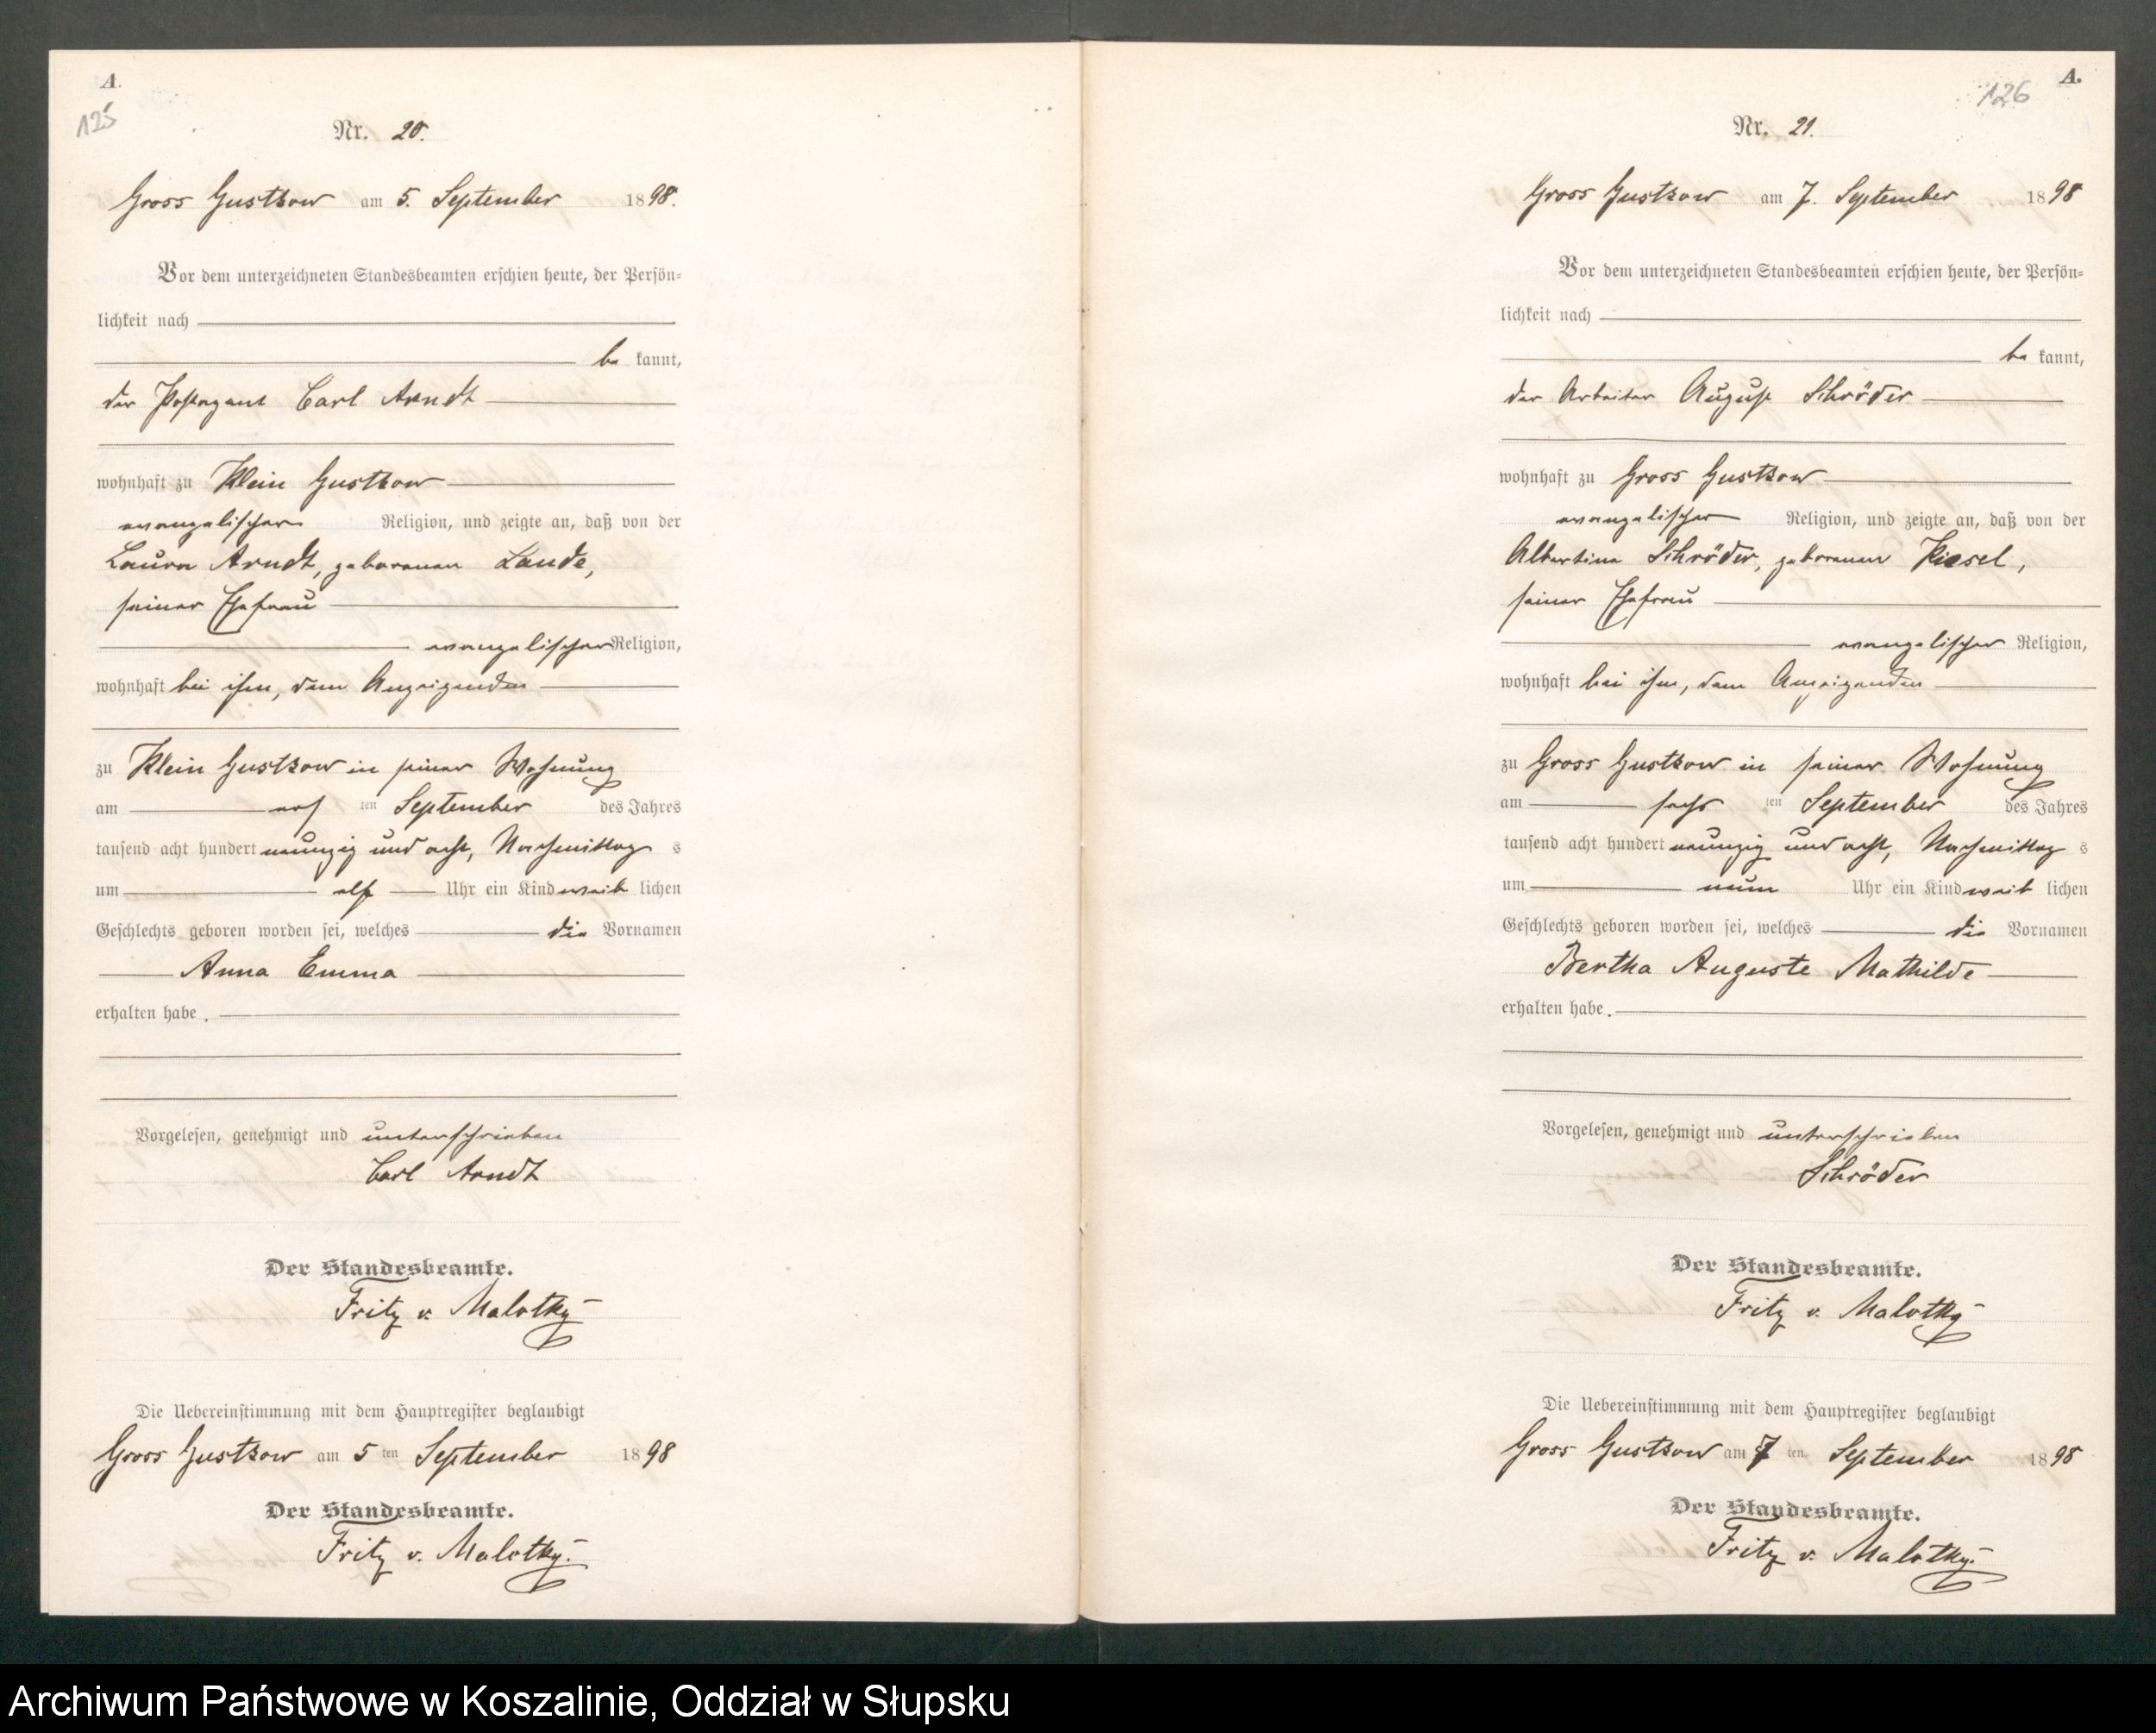 A.
125
Nr. 20.
Gross Gustkow am 5. September 1898.
Vor dem unterzeichneten Standesbeamten erschien heute, der Persön=
lichkeit nach
be kannt,
der Postagent Carl Arndt
wohnhaft zu Klein Gustkow
evangelischer Religion, und zeigte an, daß von der
Laura Arndt, geborenen Lande,
seiner Ehefrau
evangelischer Religion,
wohnhaft bei ihm, dem Anzeigenden
zu Klein Gustkow in seiner Wohnung
am ten September des Jahres
tausend acht hundert neunzig und acht, Nachmittag s
um elf Uhr ein Kind weib lichen
Geschlechts geboren worden sei, welches die Vornamen
Anna Emma
erhalten habe.
Vorgelesen, genehmigt und unterschrieben
Carl Arndt
Der Standesbeamte.
Fritz v. Malotky
Die Uebereinstimmung mit dem Hauptregister beglaubigt
Gross Gustkow am 5 ten September 1898
Der Standesbeamte.
Fritz v. Malotky.
A.
126
Nr. 21.
Gross Gustkow am 7. September 1898
Vor dem unterzeichneten Standesbeamten erschien heute, der Persön=
lichkeit nach
be kannt,
der Arbeiter August Schröder
wohnhaft zu Gross Gustkow
evangelischer Religion, und zeigte an, daß von der
Albertine Schröder, geborenen Kiesel,
seiner Ehefrau
evangelischer Religion,
wohnhaft bei ihm, dem Anzeigenden
zu Gross Gustkow in seiner Wohnung
am sechs ten September des Jahres
tausend acht hundert neunzig und acht, Nachmittag s
um neun Uhr ein Kind weib lichen
Geschlechts geboren worden sei, welches die Vornamen
Bertha Auguste Mathilde
erhalten habe.
Vorgelesen, genehmigt und unterschrieben
Schröder
Der Standesbeamte.
Fritz v. Malotky
Die Uebereinstimmung mit dem Hauptregister beglaubigt
Gross Gustkow am 7 ten September 1898
Der Standesbeamte.
Fritz v. Malotky.
Archiwum Państwowe w Koszalinie, Oddział w Słupsku